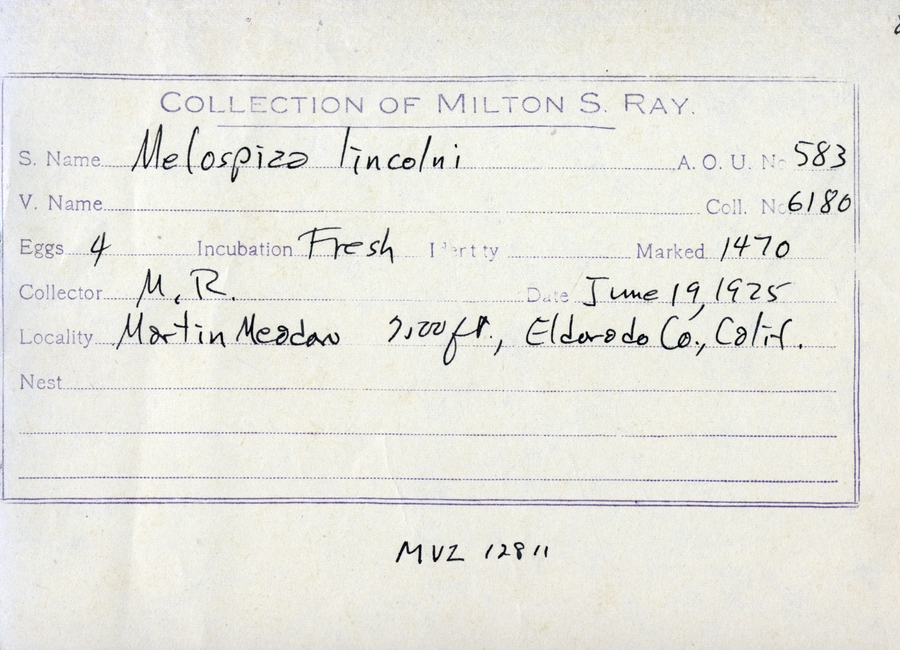 COLLECTION OF MILTON S. RAY.
S. Name Melospiza lincolni A. O. U. No 583
V. Name Coll. No 6180
Eggs 4 Incubation Fresh Identity Marked 1470
Collector M. R. Date June 19, 1925
Locality Martin Meadow ft., Eldorado Co., Calif.
Nest
MVZ 12811